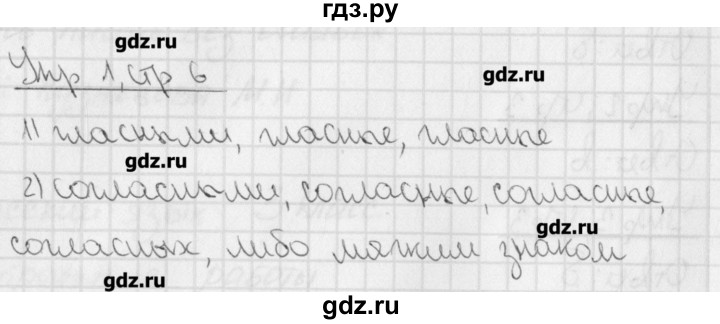 гдз.ру
gdz.ru
Упр 1, стр 6
gdz.ru
1) гласными, гласные, гласные
gdz.ru
2) согласными, согласные, согласные,
gdz.ru
согласных, либо мягким знаком
gdz.ru
gdz.ru